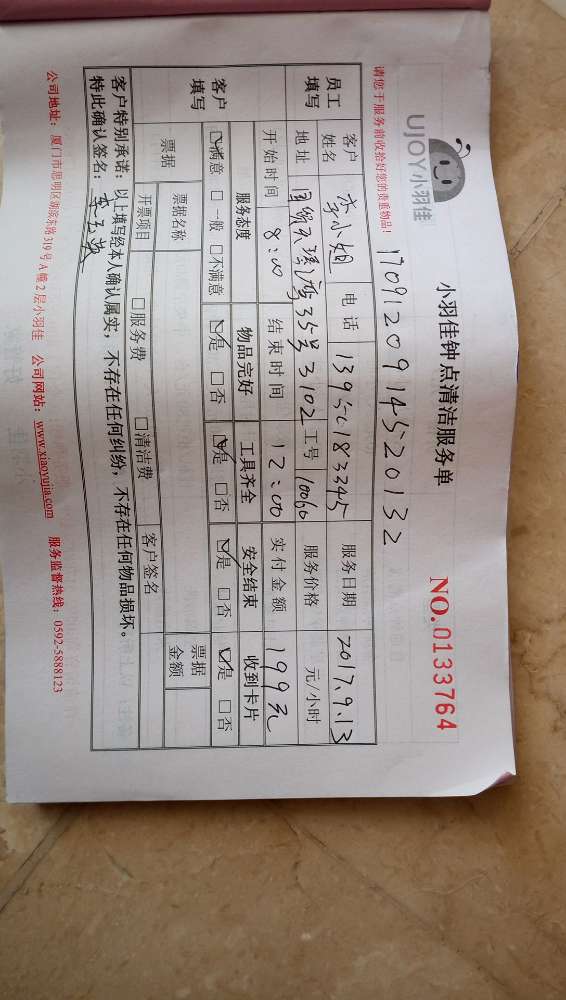 UJOY小羽佳
小羽佳钟点清洁服务单
NO.0133764
请您于服务前收拾好您的贵重物品！
1709120914520132
员工填写 客户姓名 李小姐 电话 服务日期 2017.9.13
地址 35号3102 工号 10060 服务价格 元/小时
开始时间 8:00 结束时间 12:00 实付金额 199元
客户填写 服务态度 物品完好 工具齐全 安全结束 收到卡片
☑满意 □一般 □不满意 ☑是 □否 ☑是 □否 ☑是 □否 ☑是 □否
票据 票据名称 票据金额
开票项目 □服务费 □清洁费 客户签名
客户特别承诺：以上填写经本人确认属实，不存在任何纠纷，不存在任何物品损坏。
特此确认签名：
公司地址：厦门市思明区湖滨东路319号A幢2层小羽佳 公司网站：www.xiaoyujia.com 服务监督热线：0592-5888123